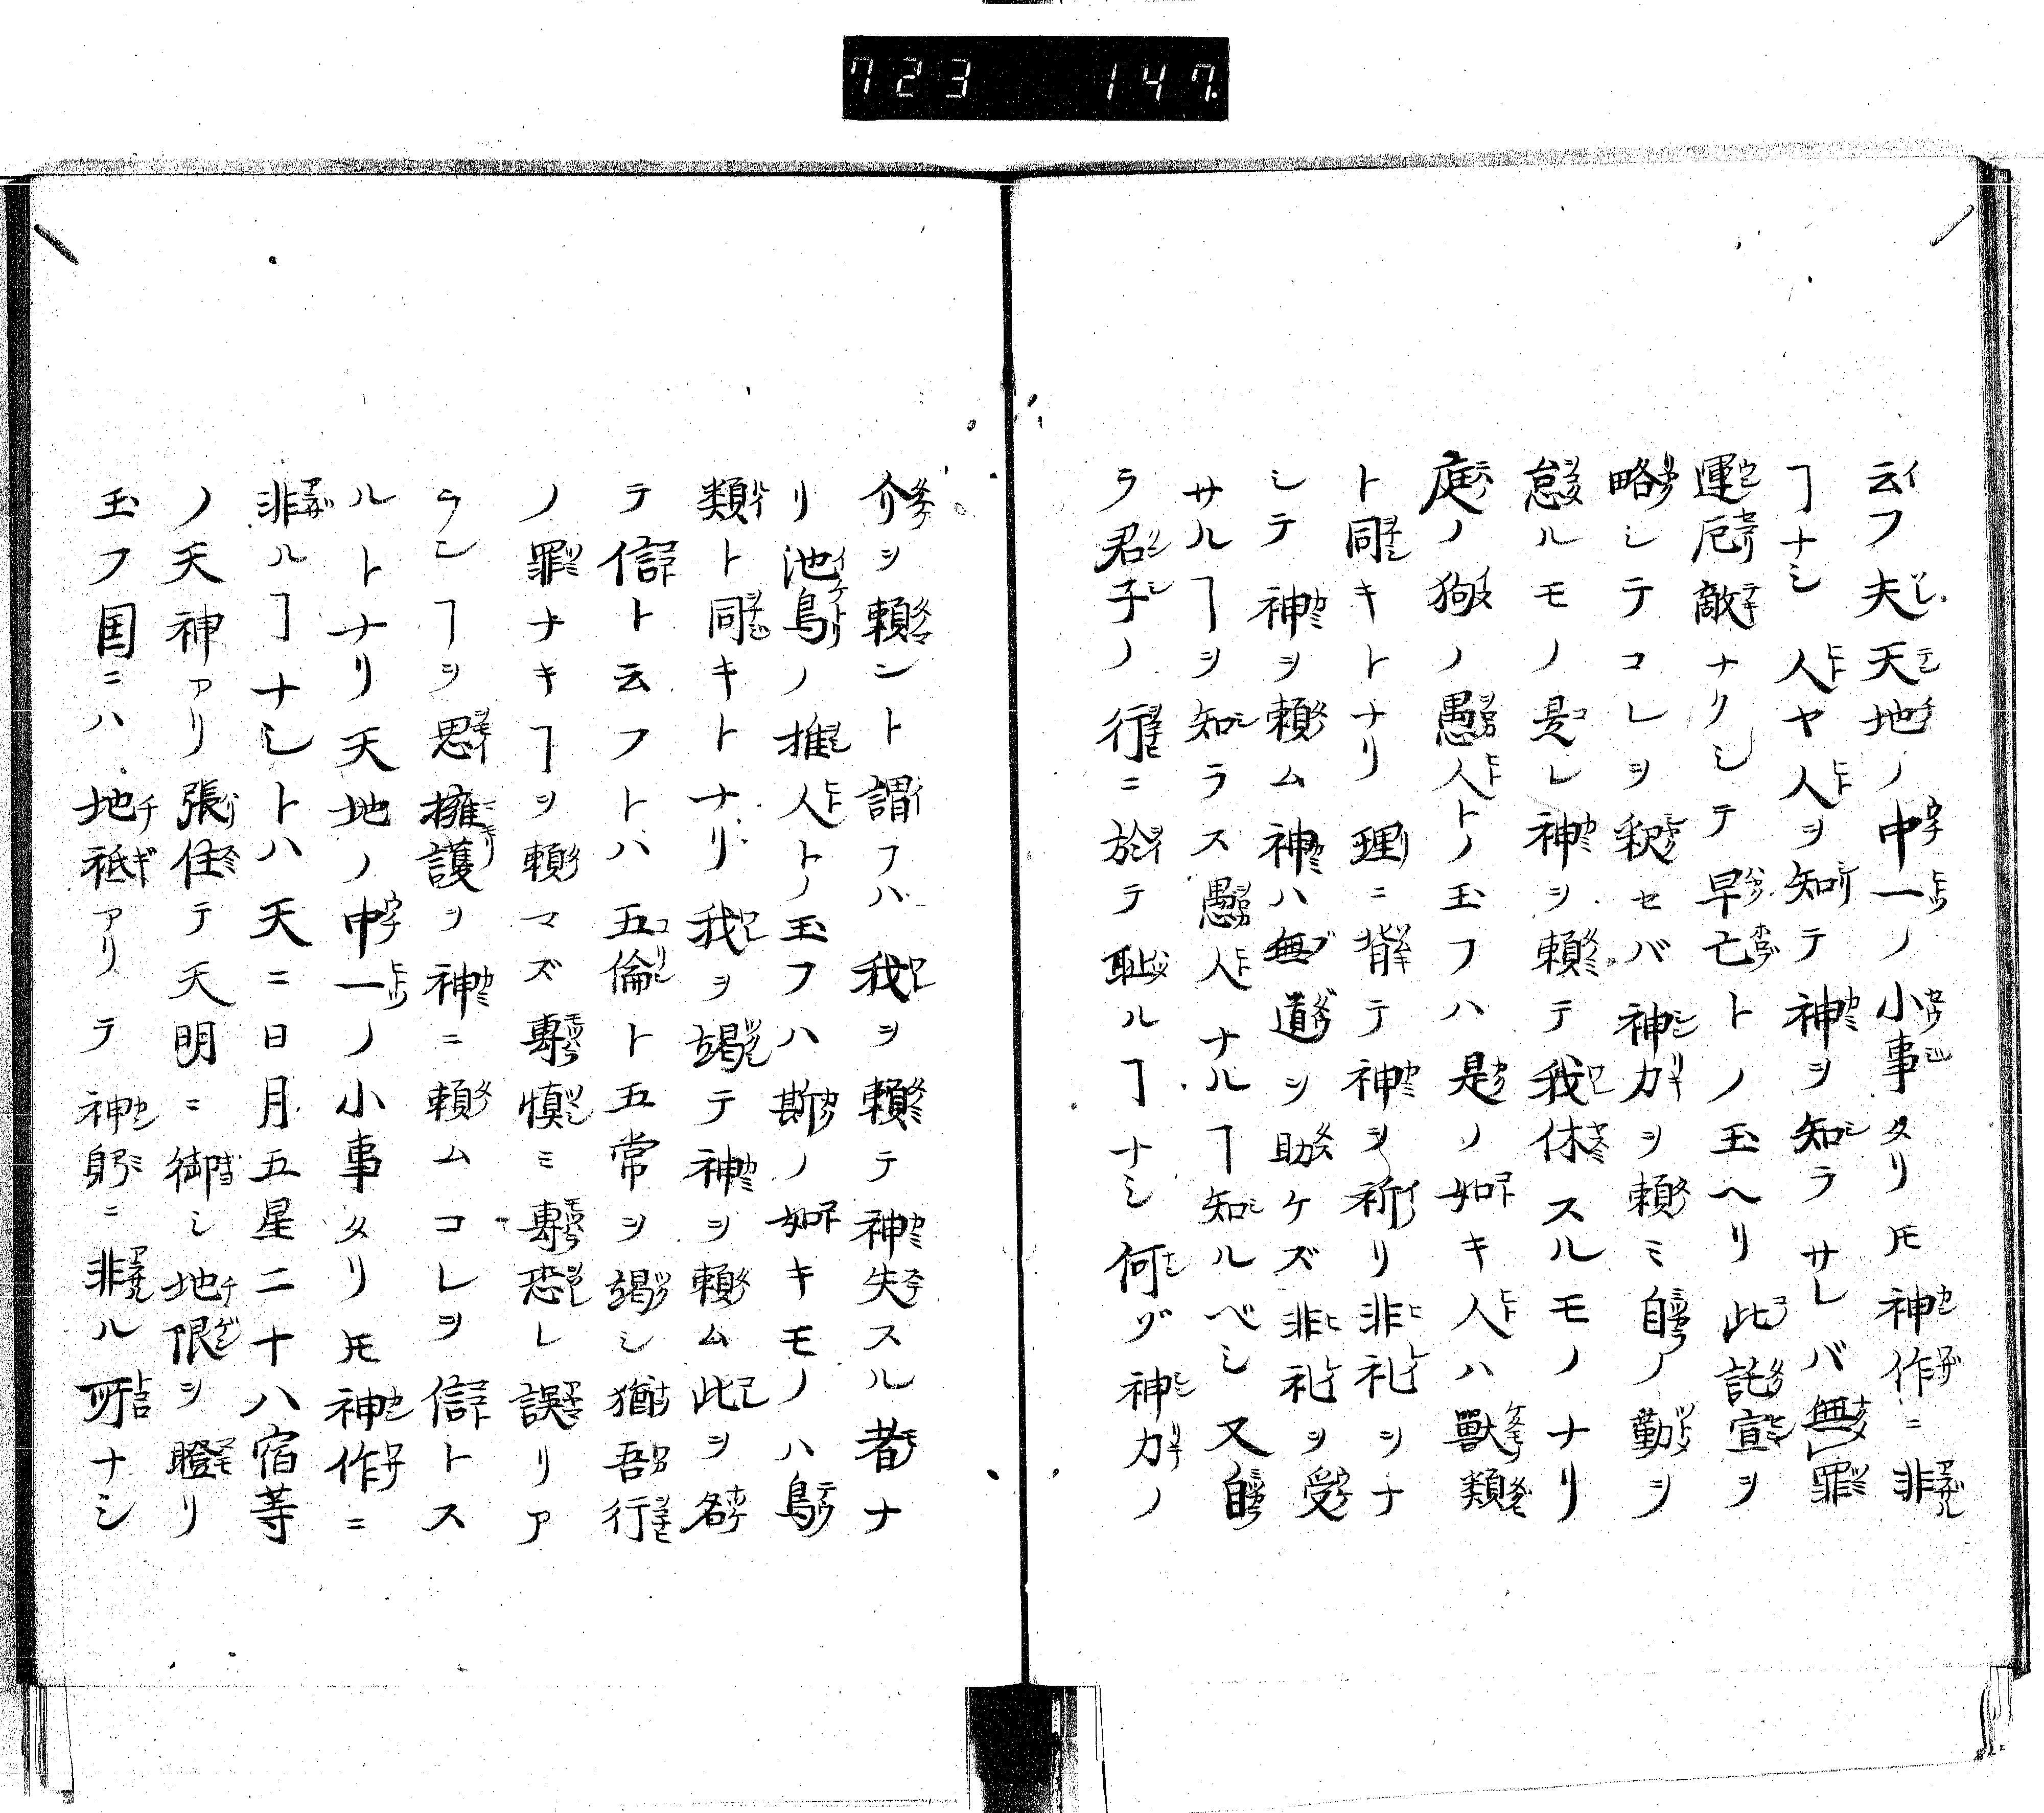 723 147.
云フ夫天地ノ中一ノ小事タリ𪜈神作ニ非
ヿナシ人ヤ人ヲ知テ神ヲ知ラサレバ無罪
運厄敵ナリシテ早亡トノ玉ヘリ此託宣ヲ
略シテコレヲ釈セバ神力ヲ頼ミ自ノ勤ヲ
怠ルモノ是レ神ヲ頼テ我休スルモノナリ
庭ノ狗ノ愚人トノ玉フハ是ノ如キ人ハ獣類
ト同キトナリ理ニ背テ神ヲ祈リ非礼ヲナ
シテ神ヲ頼ム神ハ無道ヲ助ケズ非礼ヲ受
サルヿヲ知ラス愚人ナルヿ知ルベシ又自
ラ君子ノ行ニ於テ恥ルヿナシ何ゾ神力ノ
介ヲ頼ント謂フハ我ヲ頼テ神失スル者ナ
リ池鳥ノ推人トノ玉フハ斯ノ如キモノハ鳥
類ト同キトナリ我ヲ竭テ神ヲ頼ム此ヲ名
テ信ト云フトハ五倫ト五常ヲ竭シ猶吾行
ノ罪ナキヿヲ頼マズ専慎ミ専恐レ誤リア
ランヿヲ思擁護ヲ神ニ頼ムコレヲ信トス
ルトナリ天地ノ中一ノ小事タリ𪜈神作ニ
非ルヿナシトハ天ニ日月五星二十八宿等
ノ天神アリ張住テ天明ニ御シ地限ヲ瞪リ
玉フ国ニハ地祇アリテ神躬ニ非ル所ナシ